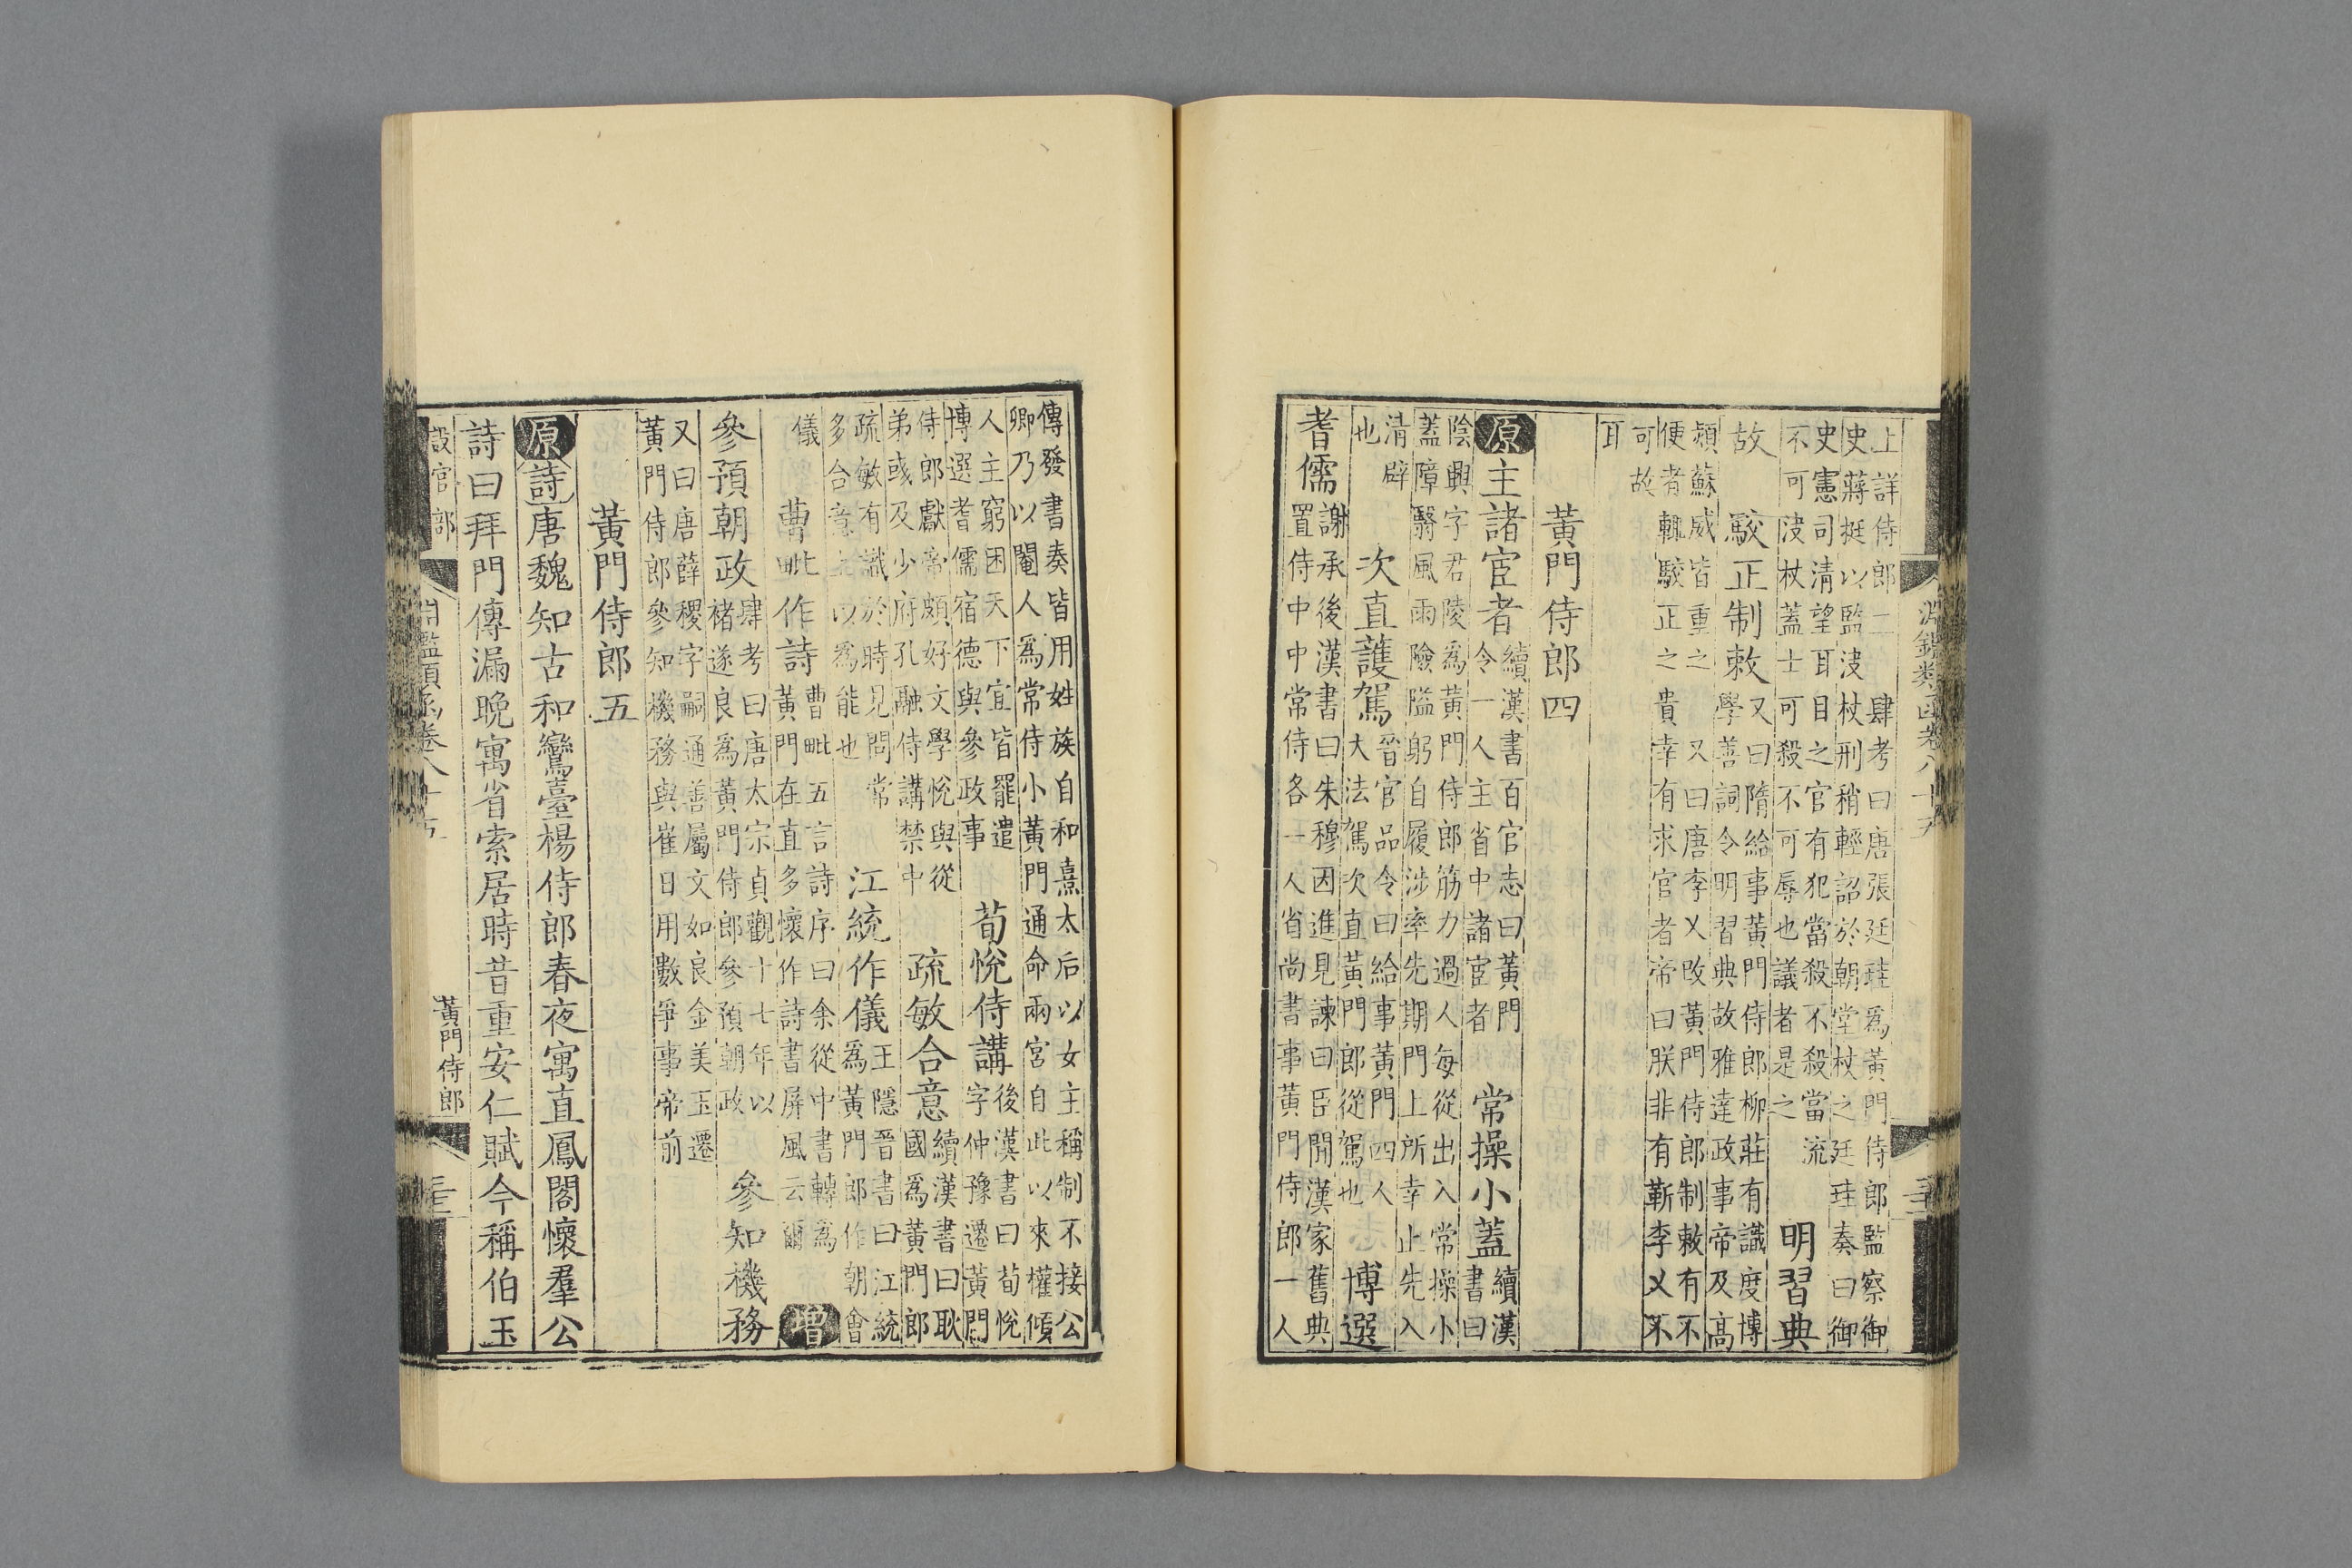 淵鑑類函卷八十五
上詳侍郎二　肆考曰唐張廷珪爲黃門侍郎監察御
史蔣挺以監決杖刑稍輕詔於朝堂杖之廷珪奏曰御
史憲司清望耳目之官有犯當殺不殺當流
不可決杖蓋士可殺不可辱也議者是之
明習典
故　駮正制敕
又曰隋給事黃門侍郎柳莊有識度博
學善詞令明習典故雅達政事帝及高
熲蘇威皆重之　又曰唐李乂改黃門侍郎制敕有不
便者輒駮正之貴幸有求官者帝曰朕非有靳李乂不
可故
耳
黃門侍郎四
原主諸宦者
續漢書百官志曰黃門
令一人主省中諸宦者
常操小蓋
續漢
書曰
陰興字君陵爲黃門侍郎筋力過人每從出入常操小
蓋障翳風雨險隘躬自履涉率先期門上所幸止先入
清辟
也
次直護駕
晉官品令曰給事黃門四人
大法駕次直黃門郎從駕也
博選
耆儒
謝承後漢書曰朱穆因進見諫曰臣聞漢家舊典
置侍中中常侍各一人省尚書事黃門侍郎一人
傳發書奏皆用姓族自和熹太后以女主稱制不接公
卿乃以閹人爲常侍小黃門通命兩宮自此以來權傾
人主窮困天下宜皆罷遣
博選耆儒宿德與參政事
荀悅侍講
後漢書曰荀悅
字仲豫遷黃門
侍郎獻帝頗好文學悅與從
弟彧及少府孔融侍講禁中
疏敏合意
續漢書曰耿
國爲黃門郎
疏敏有識於時見問常
多合意上以爲能也
江統作儀
王隱晉書曰江統
爲黃門郎作朝會
儀
曹毗作詩
曹毗五言詩序曰余從中書轉爲
黃門在直多懷作詩書屏風云爾
增
參預朝政
肆考曰唐太宗貞觀十七年以
褚遂良爲黃門侍郎參預朝政
參知機務
又曰唐薛稷字嗣通善屬文如良金美玉遷
黃門侍郎參知機務與崔日用數爭事帝前
黃門侍郎五
原詩唐魏知古和鸞臺楊侍郎春夜寓直鳳閣懷羣公
詩曰拜門傳漏晚寓省索居時昔重安仁賦今稱伯玉
設官部
淵鑑類函卷八十五
黃門侍郎